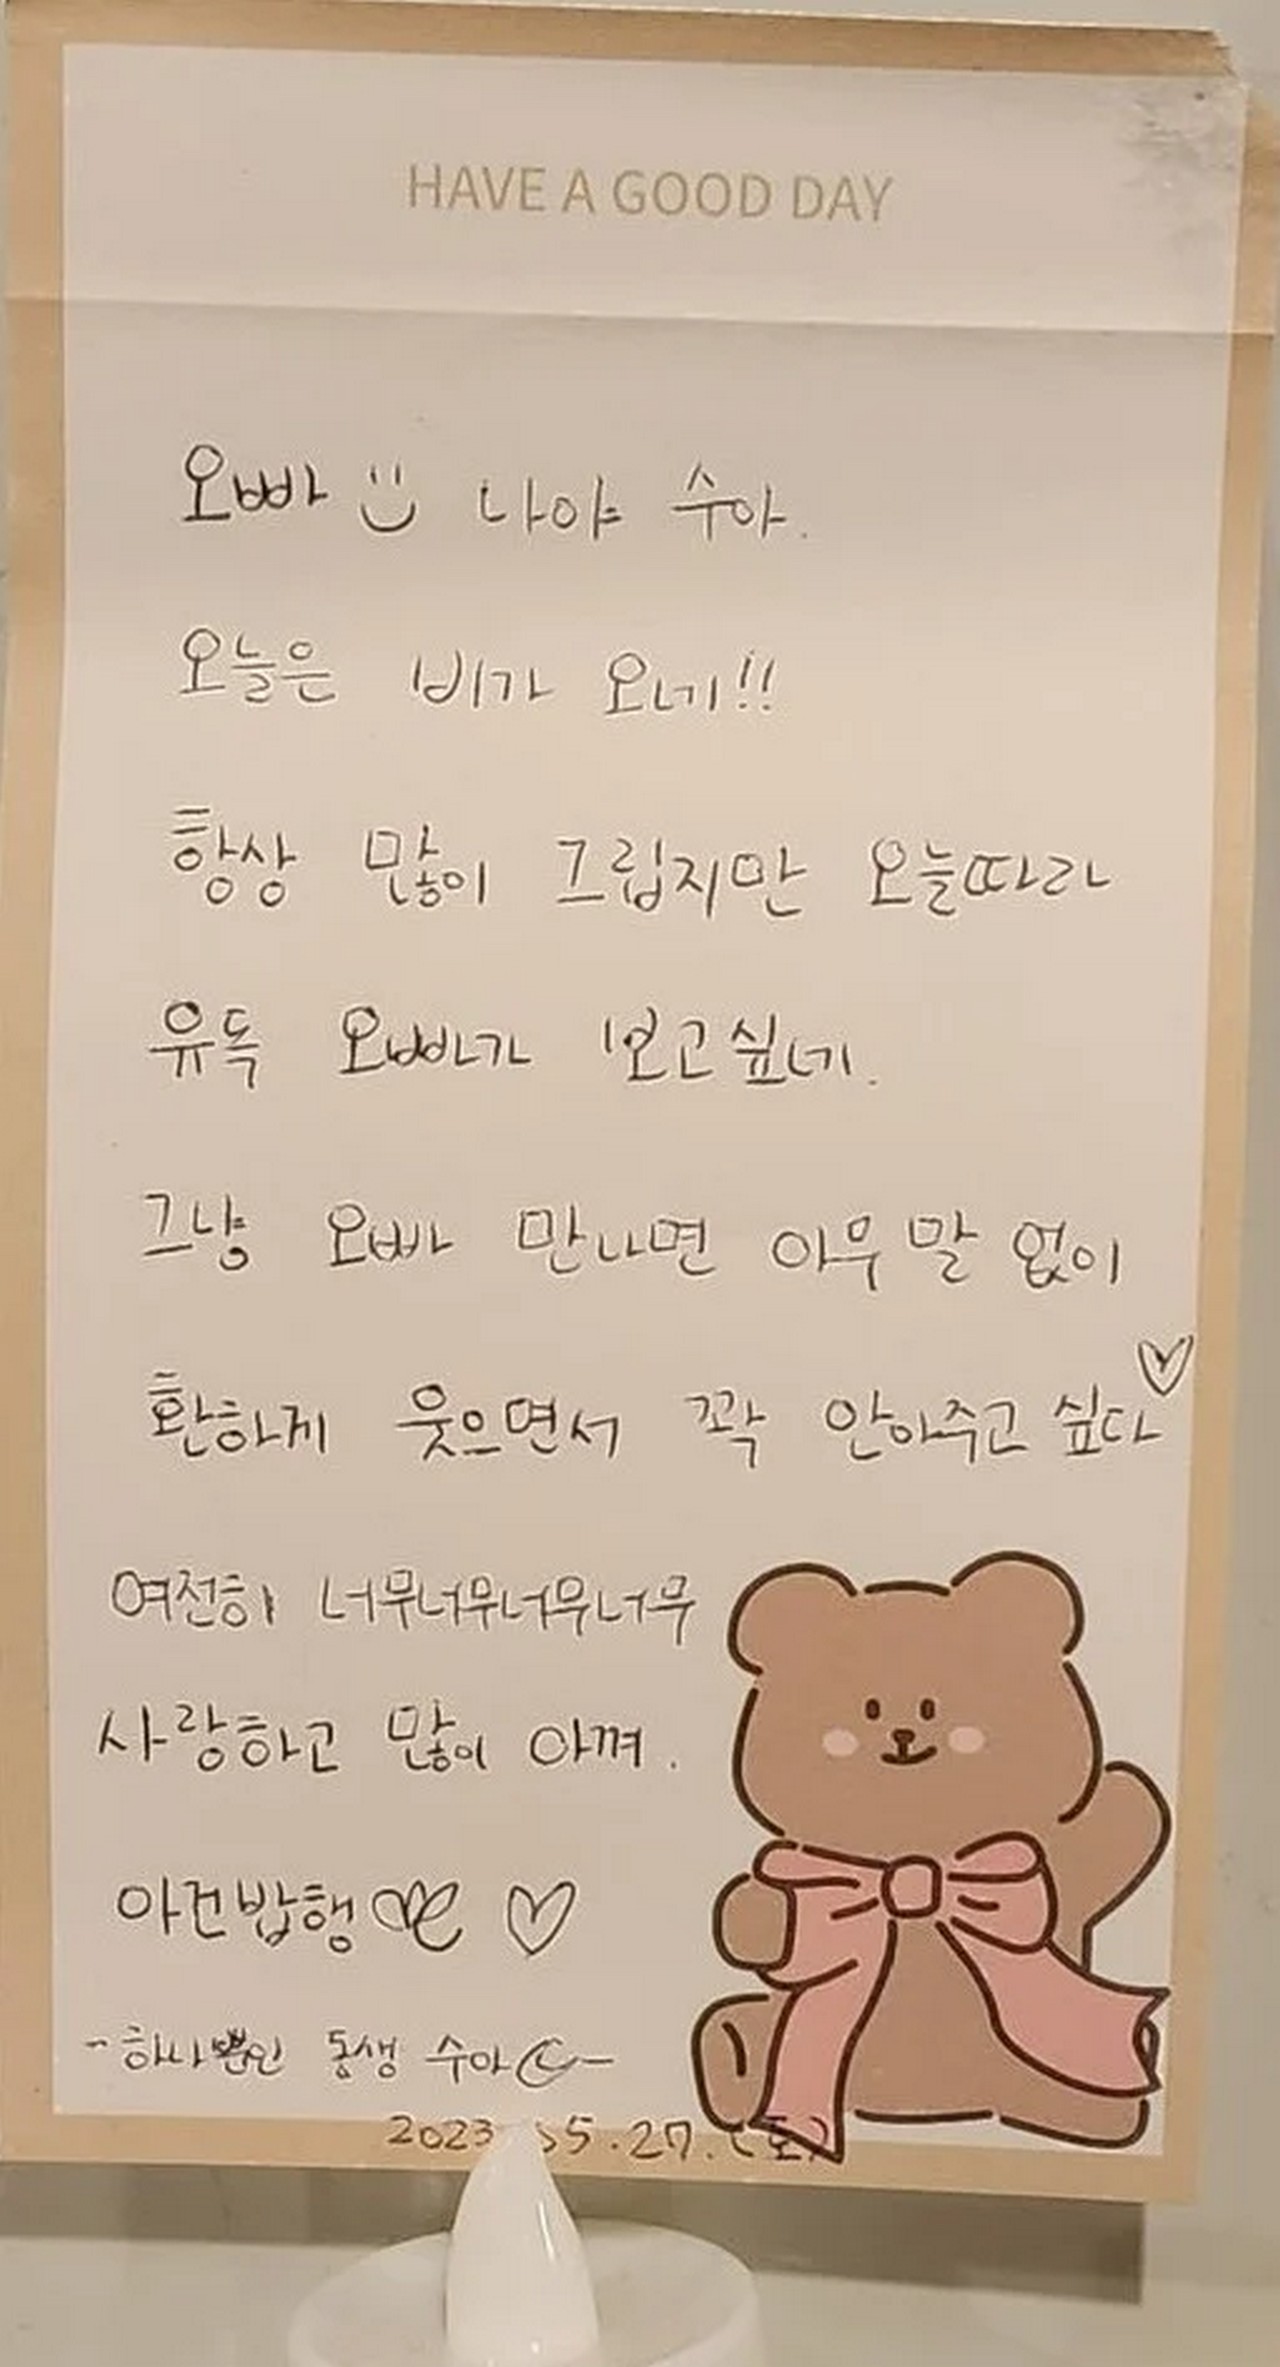 HAVE A GOOD DAY
오빠 나야 수아.
오늘은 비가 오네!!
항상 많이 그립지만 오늘따라
유독 오빠가 보고싶네.
그냥 오빠 만나면 아무 말 없이
환하게 웃으면서 꽉 안아주고 싶다
여전히 너무너무너무너무
사랑하고 많이 아껴.
아건밥행
-하나뿐인 동생 수아-
2023 5.27.(토)